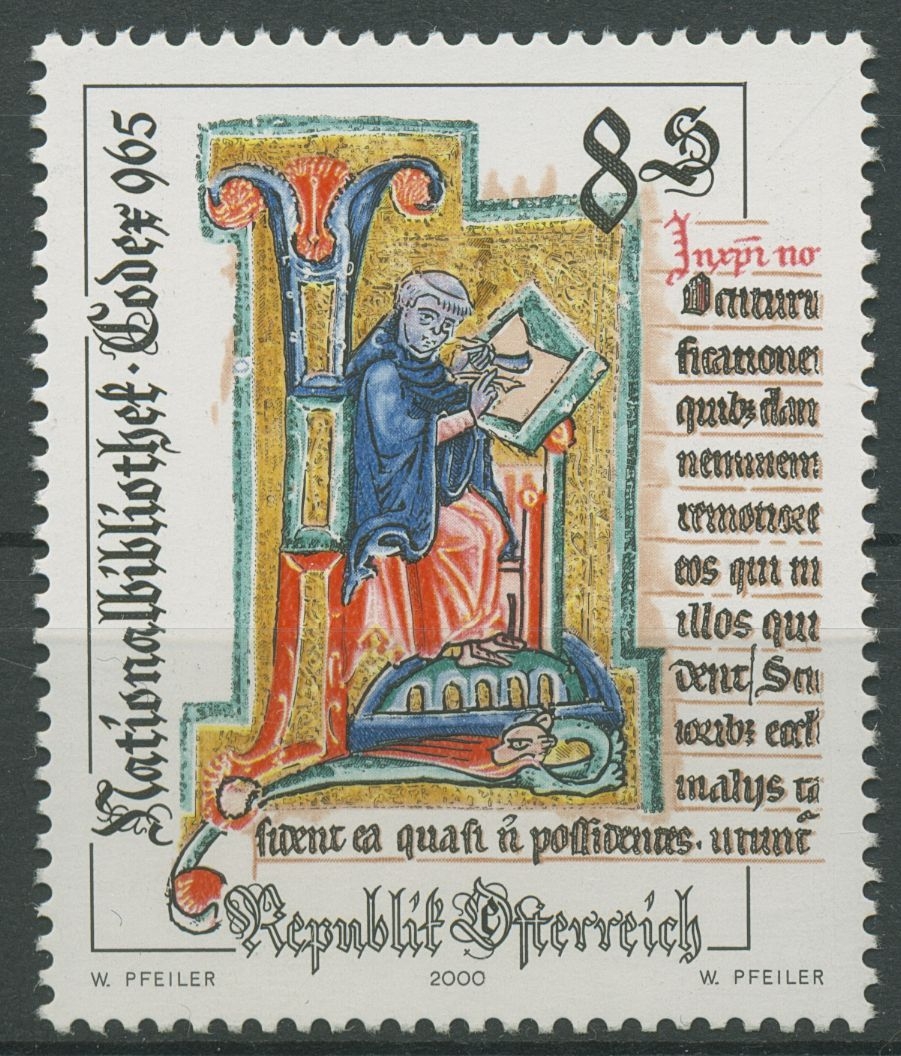 Nationalbibliothek · Codex 965
8 S
Inxp̄i no
ficatione
quibz dan
neminem
remotiore
eos qui in
illos qui
dent/Scu
ioribz eccl
malys ta
sident ea quasi n̄ possidentes. utunt̄
Republik Österreich
W. PFEILER 2000 W. PFEILER